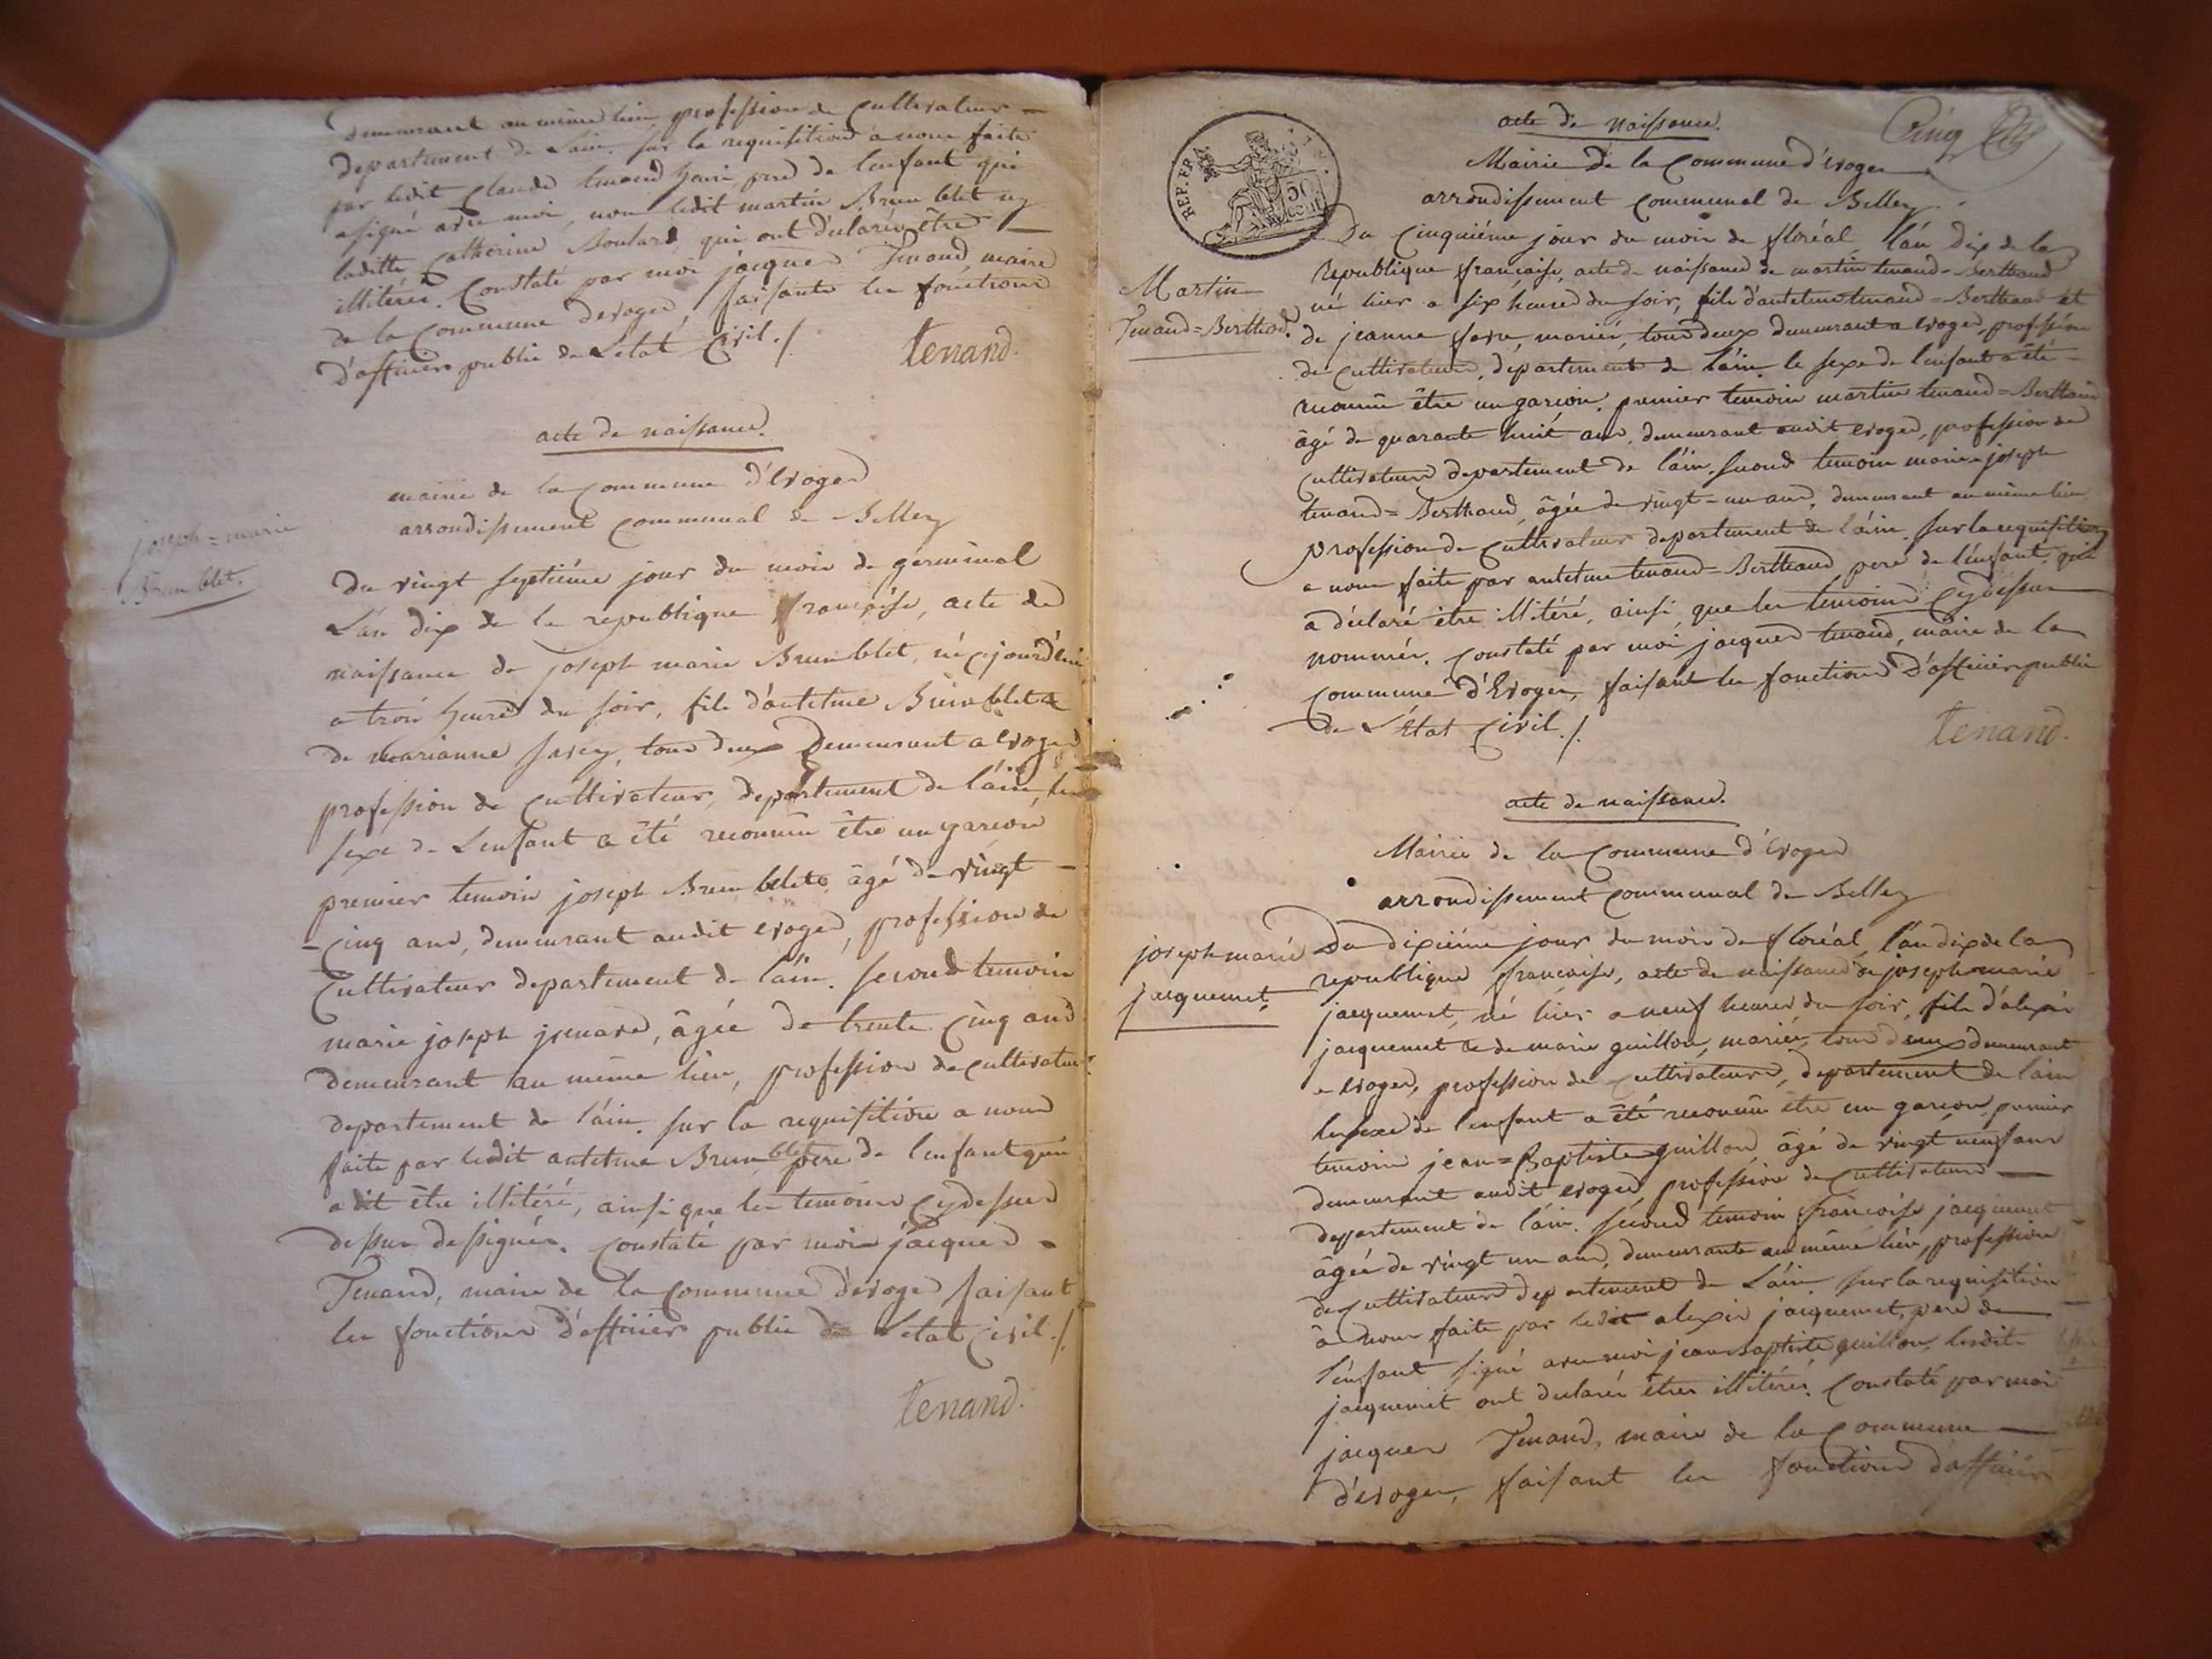 demeurant au même lieu, profession de Cultivateur
departement de Lain. sur la requisition a nous faite
par ledit Claude tenand henri, pere de lenfant qui
a signé avec moi, non ledit martin Brun blet ny
laditte Catherine Boulard, qui ont déclarés être
illitérés. Constaté par moi jacques Tenand, maire
de la Commune devoges, faisants les fonctions
d'officiers public de Letat Civil./
tenand.
acte de naissance.
mairie de la Commune d'Evoges
arrondissement Communal de Belley
joseph=marie
Brun blet.
Du vingt septiéme jour du mois de germinal
L'an dix de la republique françoise, acte de
naissance de joseph marie Brun blet, né cejourd'hui
a trois heures du soir, fils d'antelme Brun blet &
de marianne savey, tous deux Demeurant a evoges
profession de Cultivateur, departement de l'ain, le
sexe de Lenfant a été reconnu être un garcon
premier temoin joseph Brun blet, âgé de vingt
-Cinq ans, demeurant audit evoges, profession de
Cultivateur departement de lain. second temoin
marie joseph, âgée de trente Cinq ans
demeurant au même lieu, profession de cultivateur
departement de l'ain. sur la requisition a nous
faite par ledit antelme Brun blet pere de lenfant qui
a dit être illitéré, ainsi que les temoins Cydessus
dessus dessignés. Constaté par moi jacques
Tenand, maire de la Commune d'evoges faisant
les fonctions d'officiers public de Letat Civil./
tenand.
Cinq
REP. FRA.
50 CENT
acte de naissance.
Mairie de la Commune d'evoges
arrondissement Communal de Belley
Martin
Tenand=Berthaud.
Du Cinquiéme jour du mois de floréal, l'an dix de la
Republique francaise, acte de naissance de martin tenand=Berthaud
né hier a six heures du soir, fils d'antelme tenand=Berthaud et
de jeanne favre, mariés, tous deux demeurant a evoges, profession
de Cultivateurs, departement de l'ain. le sexe de lenfant a été
reconnu être un garcon. premier temoin martin tenand=Berthaud
âgé de quarante huit ans, demeurant audit evoges, profession de
Cultivateur departement de l'ain. second temoin marie joseph
tenand=Berthaud, âgée de vingt=un ans, demeurant au même lieu
profession de Cultivateur departement de l'ain. sur la requisition
a nous faite par antelme tenand=Berthaud pere de l'enfant, qui
a déclaré être illitéré, ainsi que les temoins Cydessus
nommés. Constaté par moi jacques tenand, maire de la
Commune d'Evoges, faisant les fonctions D'officiers public
de L'Etat Civil./.
tenand.
acte de naissance.
Mairie de la Commune d'Evoges
arrondissement Communal de Belley
joseph marie
jacquemet.
Du dixiéme jour du mois de floréal, l'an dix de la
republique francoise, acte de naissance de joseph marie
jacquemet, né hier a neuf heures du soir, fils d'alexis
jacquemet & de marie guillon, mariés, tous deux demeurant
a evoges, profession de Cultivateurs, departement de lain
le sexe de l'enfant a été reconnu être un garcon, premier
temoin jean=Baptiste guillon, âgé de vingt neuf ans
demeurant audit evoges, profession de Cultivateur
departement de l'ain. second temoin francoise jacquemet
âgée de vingt un ans, demeurante au même lieu, profession
de Cultivateurs departement de L'ain sur la requisition
à nous faite par ledit alexis jacquemet, pere de
l'énfant signé avec moi jean Baptiste guillon, lesdits
jacquemet ont declarés êtres illitérés. Constaté par moi
jacques Tenand, maire de la Commune
d'evoges, faisant les fonctions d'officiers